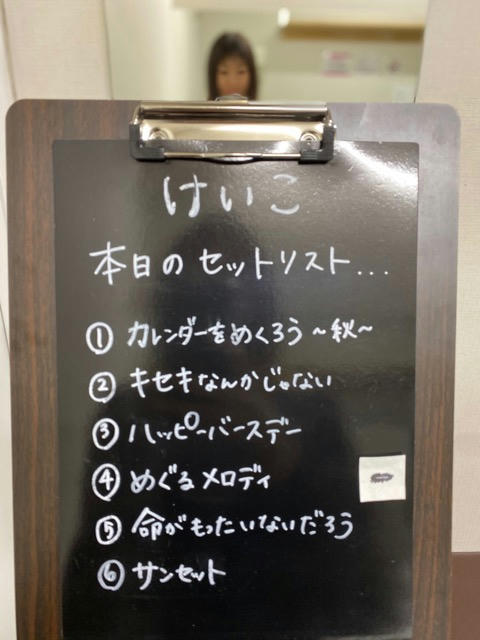 けいこ
本日のセットリスト...
① カレンダーをめくろう～秋～
② キセキなんかじゃない
③ ハッピーバースデー
④ めぐるメロディ
⑤ 命がもったいないだろう
⑥ サンセット